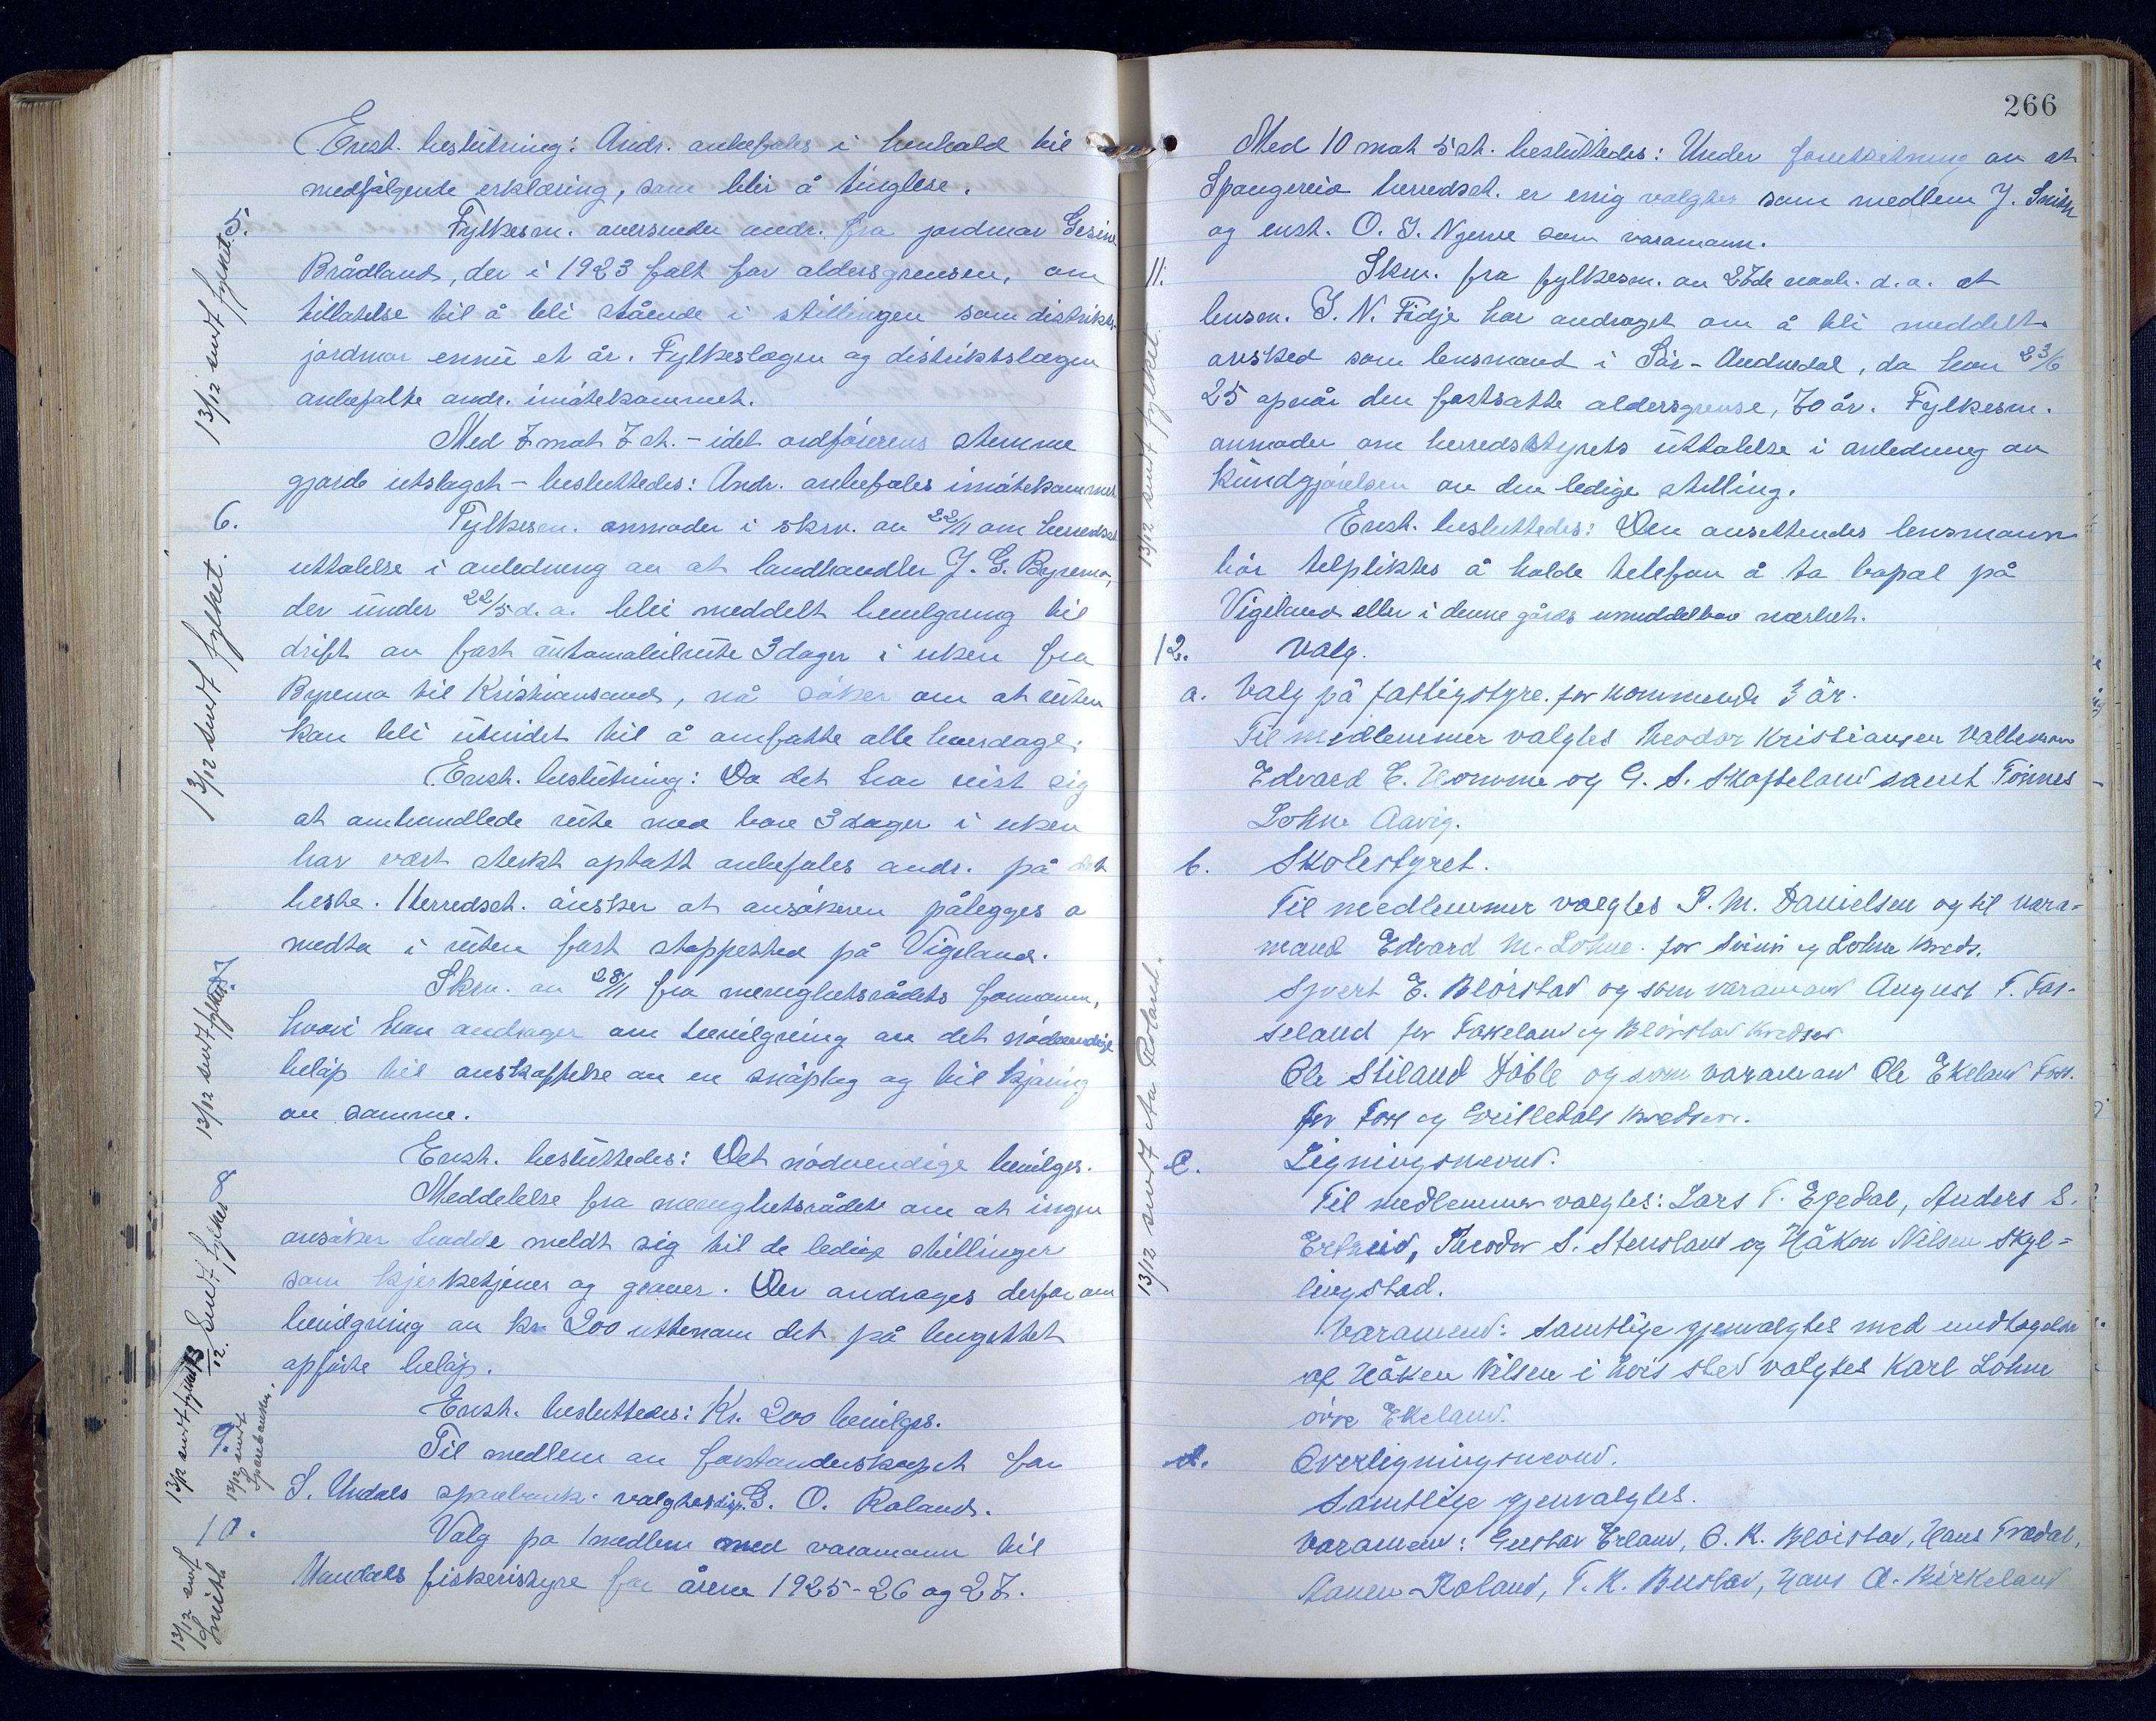 Enst. beslutning: Andr. anbefales i henhold til
medfölgende erklæring, som blir å tinglese.
5. Fylkesm. oversender andr. fra jordmor Gesine
Brådland, der i 1923 falt for aldersgrensen, om
tillatelse til å bli stående i stillingen som distrikts-
jordmor ennu et år. Fylkeslægen og distriktslægen
anbefalte andr. imötekommet.
Med 7 mot 7 st. - idet ordförerens stemme
gjorde utslaget - besluttedes: Andr. anbefales imötekommet.
6. Fylkesm. anmoder i skrv. av 22/11 om herredsst.
uttalelse i anledning av at landhandler J. G. Byremo,
der under 22/5 d.a. blei meddelt bevilgning til
drift av fast automobilrute 3 dager i uken fra
Byremo til Kristiansand, nå söker om at ruten
kan bli utvidet til å omfatte alle hverdage.
Enst. beslutning: Da det har vist sig
at omhandlede rute med bare 3 dager i uken
har vært sterkt optatt anbefales andr. på det
beste. Herredsst. önsker at ansökeren pålegges å
medta i ruten fast stoppested på Vigeland.
7. Skrv. av 28/11 fra menighetsrådets formann,
hvori han andrager om bevilgning av det nödvendige
belöp til anskaffelse av en snöplog og til kjöring
av samme.
Enst. besluttedes: Det nödvendige bevilges.
8 Meddelelse fra menighetsrådet om at ingen
ansöker hadde meldt sig til de ledige stillinger
som kjerketjener og graver. Der andrages derfor om
bevilgning av kr 200 uttenom det på budgettet
opförte belöp.
Enst. besluttedes: Kr. 200 bevilges.
9. Til medlem av forstanderskapet for
S. Undals sparebank valgtes G. O. Roland.
10. Valg på 1 medlem med varamann til
Mandals fiskeristyre for årene 1925-26 og 27.
13/12 sendt fylket
13/12 sendt fylket.
13/12 sendt fylket
13/12 sendt fylket
13/12 sendt
Sparebanken.
13/12 sendt
Smith
266
Med 10 mot 5 st. besluttedes: Under forutsetning av at
Spangereid herredsst. er enig valgtes som medlem J. Smith
og enst. O. J. Njerve som varamann.
11. Skrv. fra fylkesm. av 27de novbr. d.a. at
lensm. J. N. Fidje har andraget om å bli meddelt
avsked som lensmand i Sör-Audnedal, da han 23/6
25 opnår den fastsatte aldersgrense, 70 år. Fylkesm.
anmoder om herredsstyrets uttalelse i anledning av
kundgjörelsen av den ledige stilling.
Enst. besluttedes: Den ansettendes lensmann
bör telpliktes å holde telefon å ta bopæl på
Vigeland eller i denne gårds umiddelbare nærhet.
12. Valg.
a. Valg på fattigstyre for kommende 3 år.
Til medlemmer valgtes Theodor Kristiansen Valle
Edvard E. Homme og G. S. Skofteland samt Tönnes
Lohne Aavig.
b. Skolestyret.
Til medlemmer valgtes P. M. Danielsen og til vara-
mand Edvard M. Lohne for Svinör og Lohne kreds.
Syvert E. Blörstad og som varamand August T. Fas-
seland for Fasseland og Blörstad kredser
Ole Stiland Döble og som varamand Ole Ekeland Foss.
for Foss og kredser.
c. Ligningsnevnd.
Til medlemmer valgtes: Lars T. Egedal, Anders S.
Ertzeid, Theodor S. Stensland og Håkon Nilsen Skyl-
lingstad.
Varamend: Samtlige gjenvalgtes med undtagelse
af Håken Nilsen i hvis sted valgtes Karl Lohne
övre Ekeland.
d. Overligningsnevnd.
Samtlige gjenvalgtes.
Varamend: Gustav Erland, O. K. Blörstad, Hans Trædal,
Aanen Roland, T. K. Bustad, Hans A. Birkeland
13/12 sendt fylket
13/12 sendt Roland.